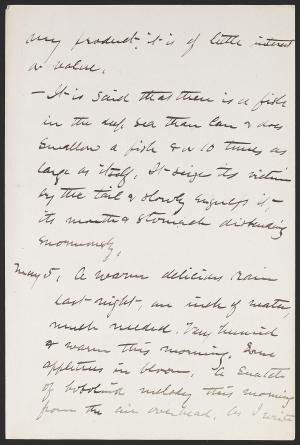 any product, it is of little interest
or value.
— It is said that there is a fish
in the deep sea that can & does
swallow a fish 8 or 10 times as
large as itself. It seizes its victim
by the tail & slowly engulfs it —
its mouth & stomach distending
enormously.
May 5, A warm delicious rain
last night, an inch of water,
much needed. Very humid
& warm this morning. Some
appletrees in bloom. A snatch
of bobolink melody this morning
from the air overhead. As I write